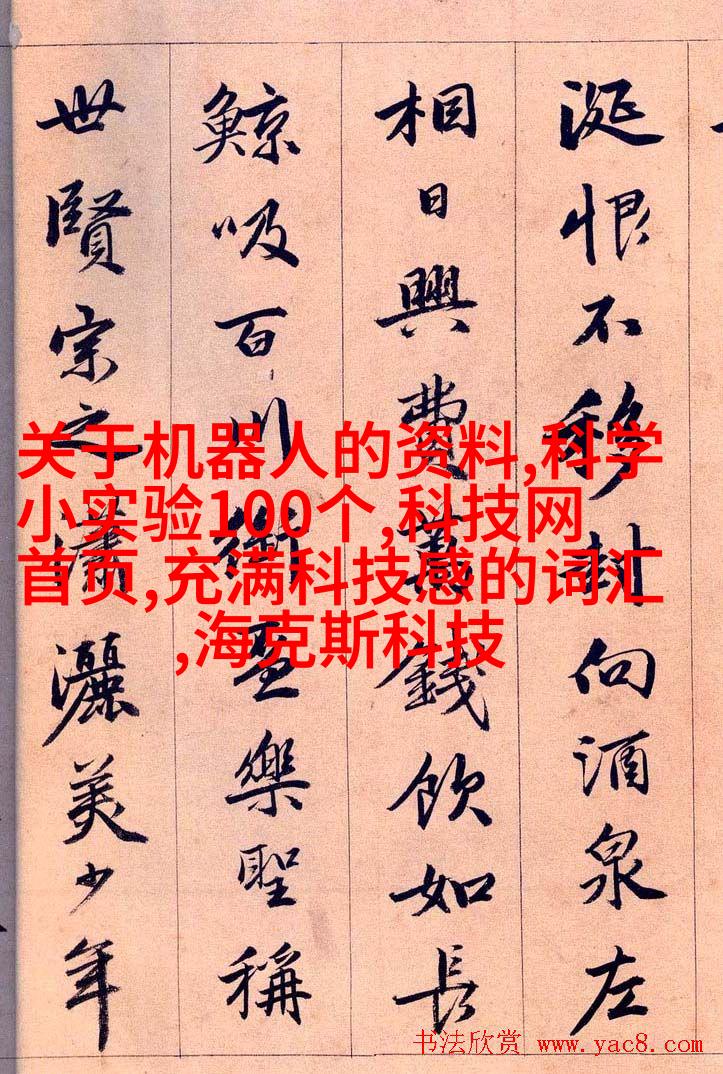 涎恨不移封向酒泉左
相日興費萬錢飲如長
鯨吸百川銜盃樂聖稱
世賢宗之瀟灑美少年
关于机器人的资料,科学
小实验100个,科技网
首页,充满科技感的词汇
,海克斯科技
书法欣赏 www.yac8.com